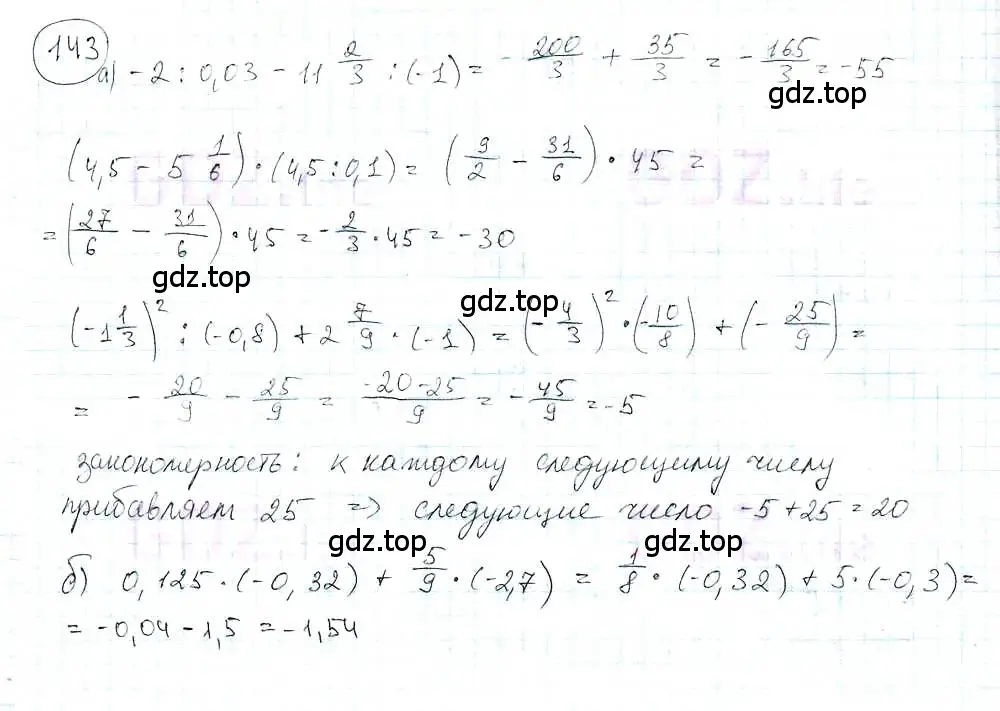 143
а) - 2 : 0,03 - 11 2/3 : (-1) = - 200/3 + 35/3 = - 165/3 = -55
gdz.top
(4,5 - 5 1/6) · (4,5 : 0,1) = (9/2 - 31/6) · 45 =
= (27/6 - 31/6) · 45 = - 2/3 · 45 = -30
gdz.top
gdz.top
(-1 1/3)² : (-0,8) + 2 7/9 · (-1) = (- 4/3)² · (- 10/8) + (- 25/9) =
= - 20/9 - 25/9 = -20-25/9 = - 45/9 = -5
закономерность: к каждому следующему числу
прибавляем 25 => следующие число -5+25=20
gdz.top gdz.top
б) 0,125 · (-0,32) + 5/9 · (-2,7) = 1/8 · (-0,32) + 5 · (-0,3) =
= -0,04 - 1,5 = -1,54